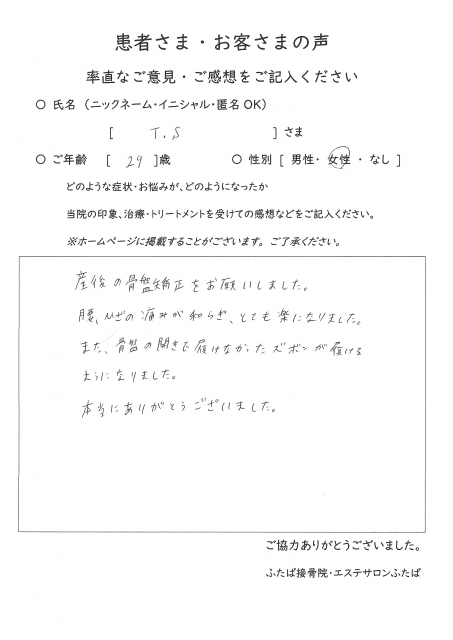 患者さま・お客さまの声
率直なご意見・ご感想をご記入ください
○ 氏名（ニックネーム・イニシャル・匿名OK）
[ T.S ] さま
○ ご年齢 [ 29 ]歳 ○ 性別 [ 男性・ 女性 ・ なし ]
どのような症状・お悩みが、どのようになったか
当院の印象、治療・トリートメントを受けての感想などをご記入ください。
※ホームページに掲載することがございます。ご了承ください。
産後の骨盤矯正をお願いしました。
腰、ひざの痛みが和らぎ、とても楽になりました。
また、骨盤の開きで履けなかったズボンが履ける
ようになりました。
本当にありがとうございました。
ご協力ありがとうございました。
ふたば接骨院・エステサロンふたば